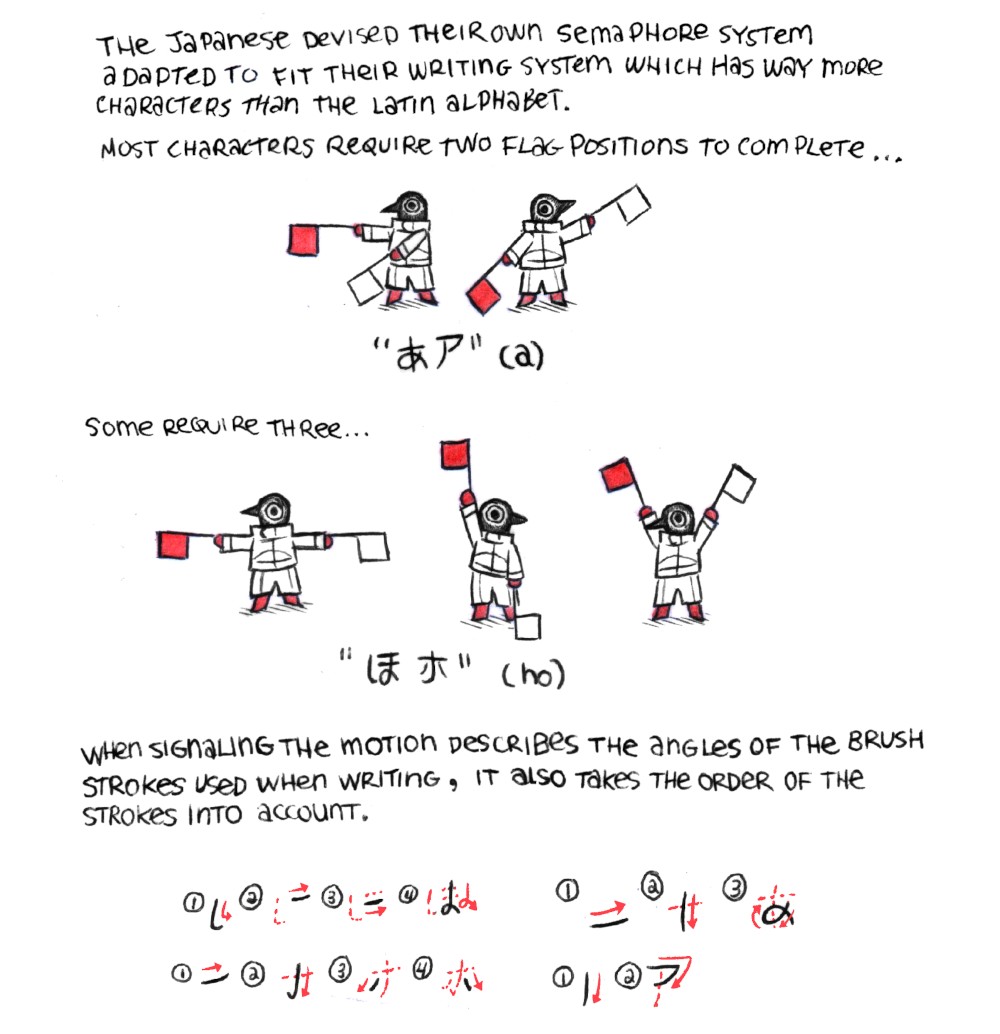 THE JAPANESE DEVISED THEIR OWN SEMAPHORE SYSTEM
ADAPTED TO FIT THEIR WRITING SYSTEM WHICH HAS WAY MORE
CHARACTERS THAN THE LATIN ALPHABET.
MOST CHARACTERS REQUIRE TWO FLAG POSITIONS TO COMPLETE...
"あア" (a)
SOME REQUIRE THREE...
"ほホ" (ho)
WHEN SIGNALING THE MOTION DESCRIBES THE ANGLES OF THE BRUSH
STROKES USED WHEN WRITING, IT ALSO TAKES THE ORDER OF THE
STROKES INTO ACCOUNT.
① ② ③ ④ ほ ① ② ③ あ
① ② ③ ④ ホ ① ② ア